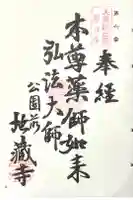 奉経
本尊薬師如来
弘法大師
公園前
地蔵寺